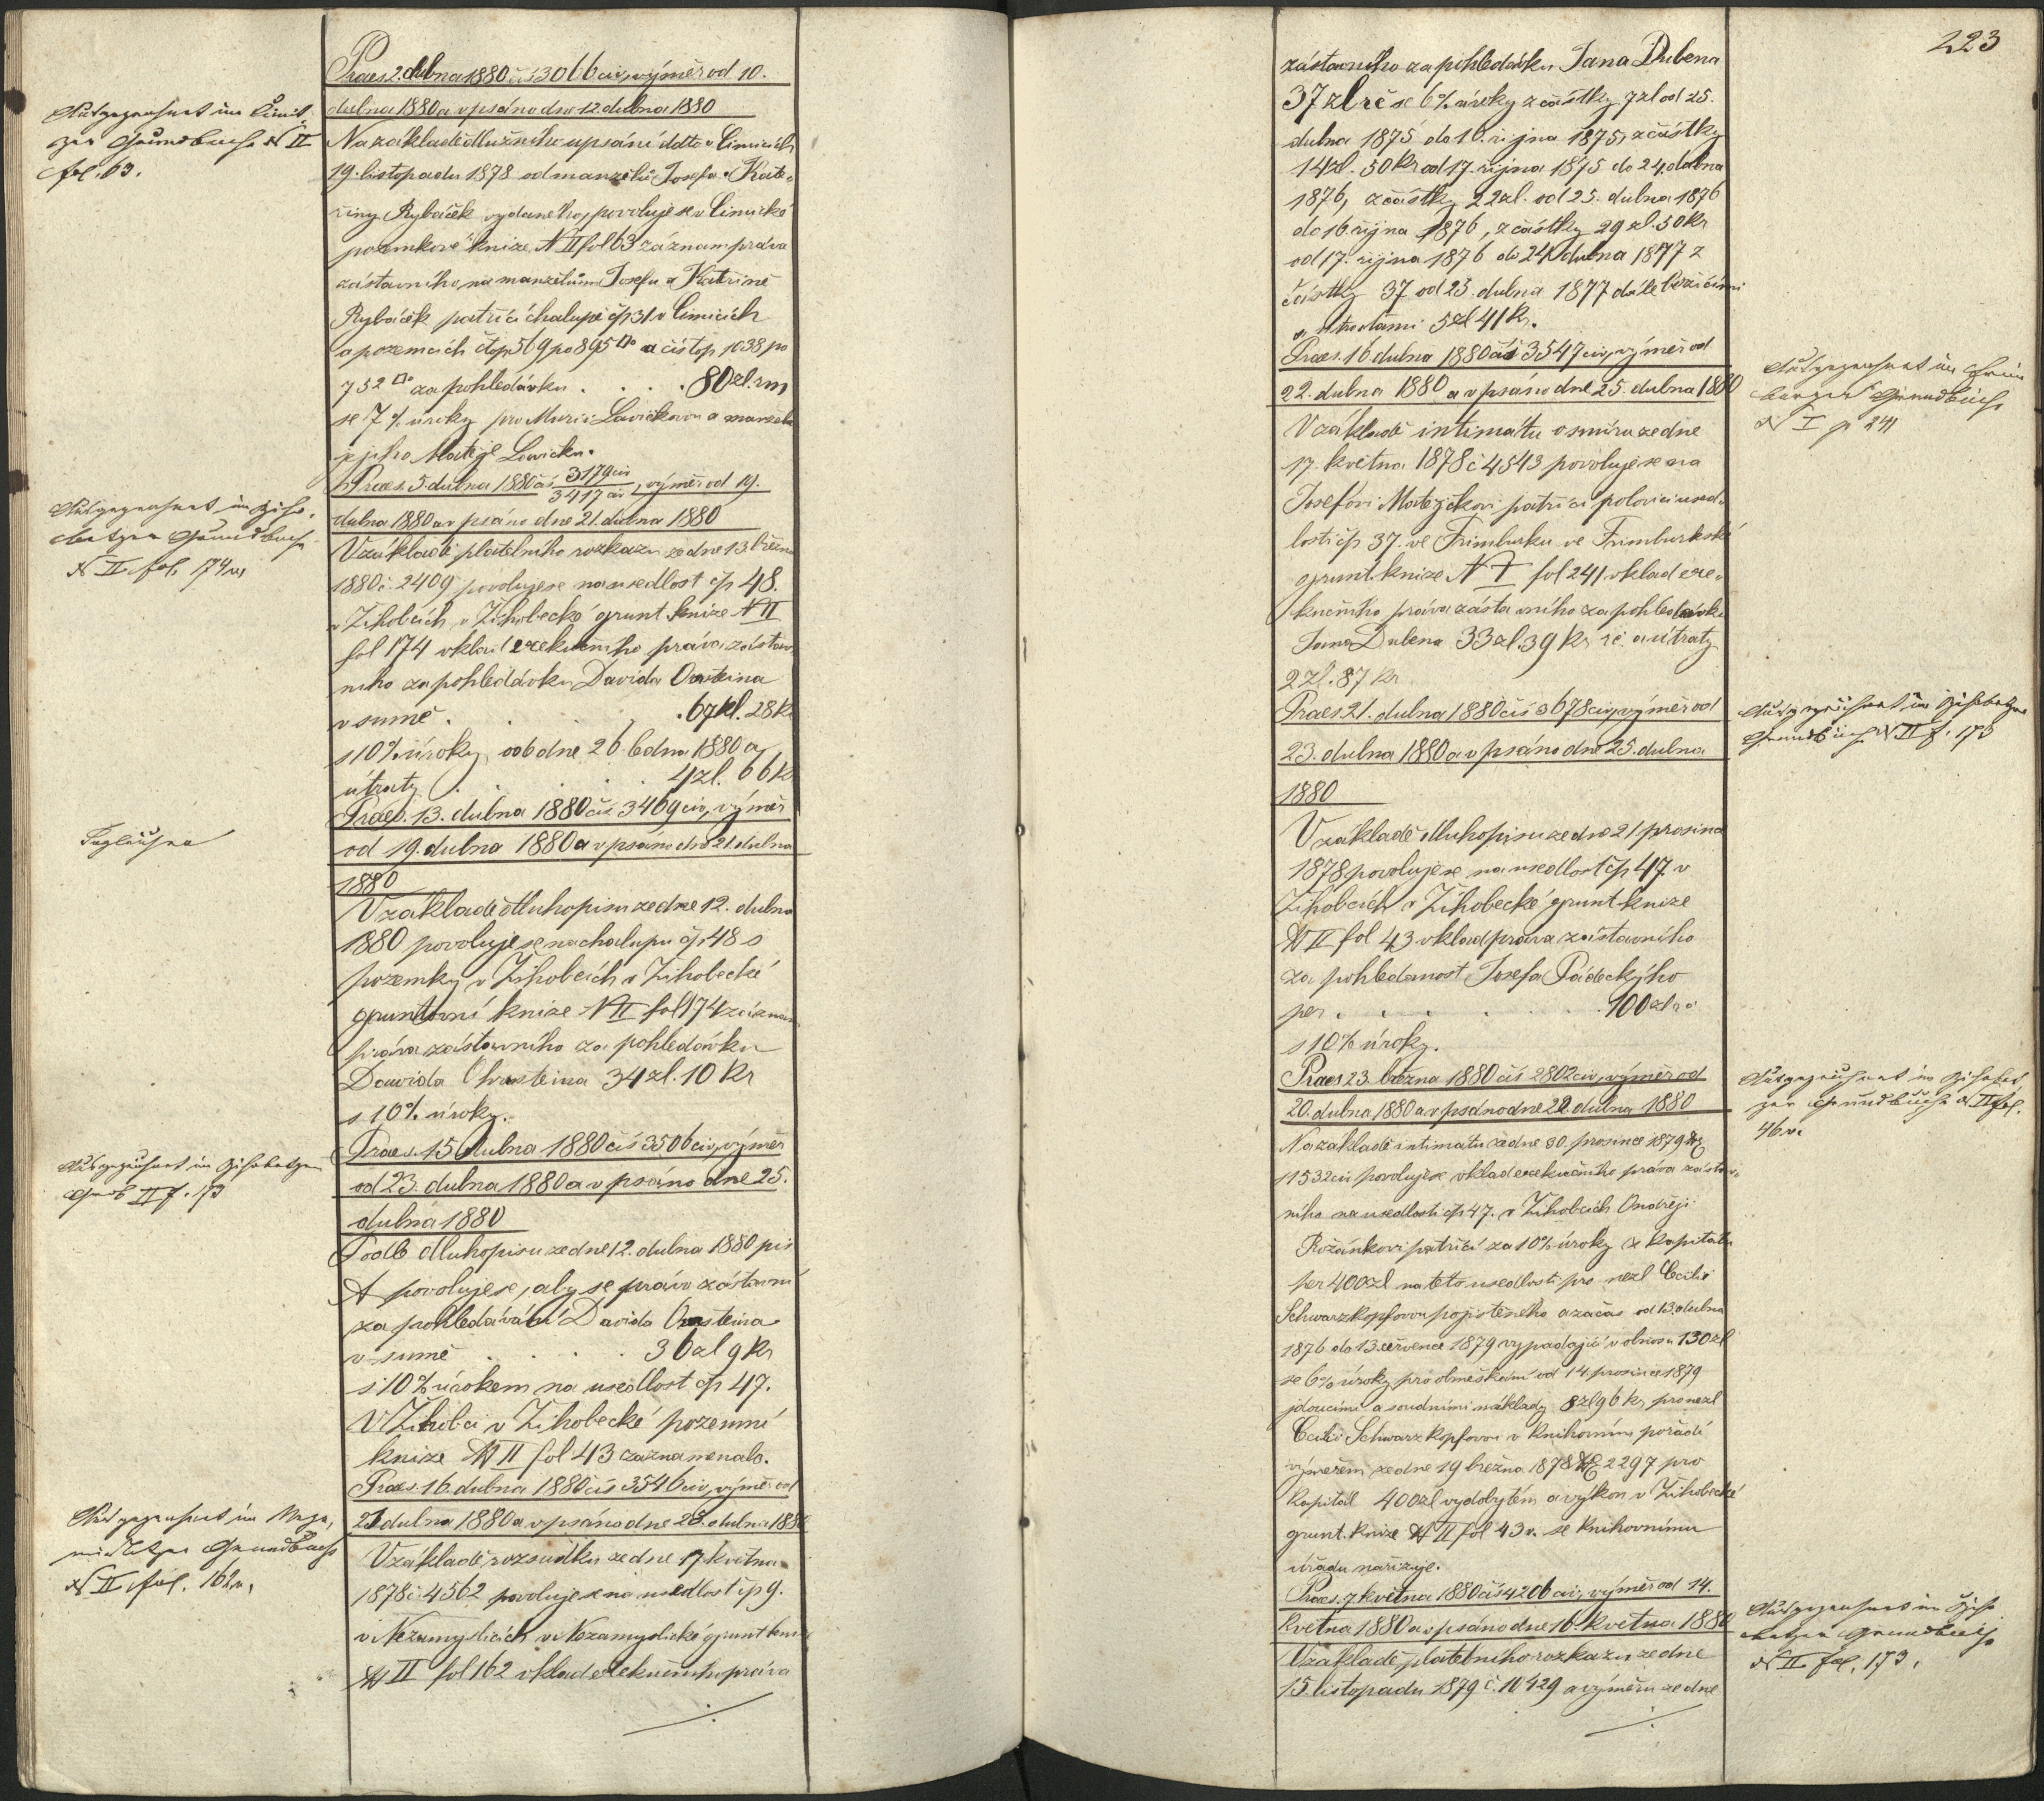 Praes. 2. dubna 1880 čís 3066 civ, výměr od 10.
dubna 1880 a vpsáno dne 12. dubna 1880
Ausgezeichnet im Čimit-
zer Grundbuche N II
fol. 63.
Na základě dlužního upsání ddto v Čimicích
19. listopadu 1878 od manželů Josefa a Kate-
řiny Rybáček vydaného, povoluje se v Čimické
pozemkové knize N II fol 63 záznam práva
zástavního, na manželům Josefu a Kateřině
Rybáček patřící chalupě čp 31 v Čimicích
a pozemcích čtop 569 po 895 □° a čís top 1038 po
752 □° za pohledávku . . . . 80 zl. rm
se 7 % úroky pro Marii Lavičkovou a manžela
jejího Matěje Lavičku.
Praes. 5. dubna 1880 čís 3179 civ / 3417 civ, výměr od 19.
dubna 1880 a vpsáno dne 21. dubna 1880
Ausgezeichnet im Ziho-
betzer Grundbuche
N II fol. 174 v
V základě platebního rozkazu ze dne 13 března
1880 č 2409 povoluje se na usedlost čp 48.
v Žihobcích, v Žihobecké grunt. knize N II
fol 174 vklad exekučního práva zástav-
ního za pohledávku Davida Ornsteina
v sumě . . . . 67 zl. 28 k
s 10% úroky, ode dne 26. ledna 1880 a
útraty . . . . 4 zl. 66 k
Praes. 13. dubna 1880 čís 3469 civ, výměr
od 19. dubna 1880 a vpsáno dne 21. dubna
1880
V základě dluhopisu ze dne 12. dubna
1880 povoluje se na chalupu čp. 48 s
pozemky v Žihobcích v Žihobecké
gruntovní knize N II fol 174 záznam
práva zástavního za pohledávku
Davida Ohrnsteina 34 zl. 10 kr
s 10% úroky.
Praes. 15 dubna 1880 čís 3506 civ, výměr
od 23. dubna 1880 a vpsáno dne 25.
dubna 1880
Ausgezeichnet im Zihobetzer
Grdb II f. 173
Podle dluhopisu ze dne 12. dubna 1880 pis
A povoluje se, aby se právo zástavní
za pohledávání Davida Ornsteina
v sumě . . . . 36 zl 9 kr
s 10% úrokem na usedlost čp 47.
V Žihobci v Žihobecké pozemní
knize N II fol 43 zaznamenalo.
Praes. 16. dubna 1880 čís 3546 civ, výměr od
23 dubna 1880 a vpsáno dne 28. dubna 1880
Ausgezeichnet im Neza-
mislitzer Grundbuche
N II fol. 162 v.
V základě rozsudku ze dne 17. května
1878 č 4562 povoluje se na usedlost čp 9.
v Nezamyslicích v Nezamyslické grunt knize
N II fol 162 vklad exekučního práva
223
zástavního za pohledávku Jana Dubena
37 zl rč se 6% úroky z částky 7 zl od 25.
dubna 1875 do 16. října 1875, z částky
14 zl. 50 kr od 17. října 1875 do 24. dubna
1876, z částky 22 zl. od 25. dubna 1876
do 16 října 1876, z částky 29 zl. 50 kr
od 17. října 1876 do 24 dubna 1877 z
částky 37 od 25. dubna 1877 dále běžícími
a útratami 5 zl 41 kr.
Praes. 16 dubna 1880 čís 3547 civ, výměr od
22. dubna 1880 a vpsáno dne 25. dubna 1880
N I p 241
V základě intimátu o smíru ze dne
17. května 1878 č 4543 povoluje se na
Josefovi Matejčkovi patřící polovici used-
losti čp 37. ve Frimburku ve Frimburkské
grunt. knize N I fol 241 vklad exe-
kučního práva zástavního za pohledávku
Jana Dubena 33 zl. 39 kr rč. a útraty
2 zl. 87 kr
Praes. 21. dubna 1880 čís 3678 civ, výměr od
23. dubna 1880 a vpsáno dne 25. dubna
1880
Ausgezeichnet im Zihobetzer
Grundbuche N II f. 173
V základě dluhopisu ze dne 21. prosince
1878 povoluje se na usedlost čp 47 v
Žihobcích v Žihobecké grunt. knize
N II fol 43 vklad práva zástavního
za pohledanost Josefa Pádeckýho
per . . . . 100 zl rč
s 10% úroky.
Praes 23. března 1880 čís 2802 civ, výměr od
20. dubna 1880 a vpsáno dne 22. dubna 1880
Ausgezeichnet im Zihobet-
zer Grundbuche N II fol.
46 v.
Na základě intimatu ze dne 30. prosince 1879 N
11532 civ povoluje se vklad exekučního práva zástav-
ního na usedlosti čp 47. v Žihobcích Ondřeji
Rožánkovi patřící za 10% úroky z kapitálu
per 400 zl na této usedlosti pro nezl Cecilii
Schwarzkopfovou pojištěného a za čas od 13. dubna
1876 do 13. července 1879 vypadající v obnosu 130 zl
se 6% úroky pro obmeškání od 14. prosince 1879
jdoucími a soudními náklady 8 zl 96 kr pro nezl
Cecilii Schwarzkopfovou v knihovním pořadí
výměrem ze dne 19 března 1878 N 2297 pro
kapitál 400 zl vydobytém a výkon v Žihobecké
grunt. knize N II fol 43 v. se knihovnímu
úřadu nařizuje.
Praes. 7. května 1880 čís 4206 civ, výměr od 14.
května 1880 a vpsáno dne 16. května 1880
Ausgezeichnet im Ziho-
betzer Grundbuche
N II fol. 173.
V základě platebního rozkazu ze dne
15. listopadu 1879 č. 10429 a výměru ze dne